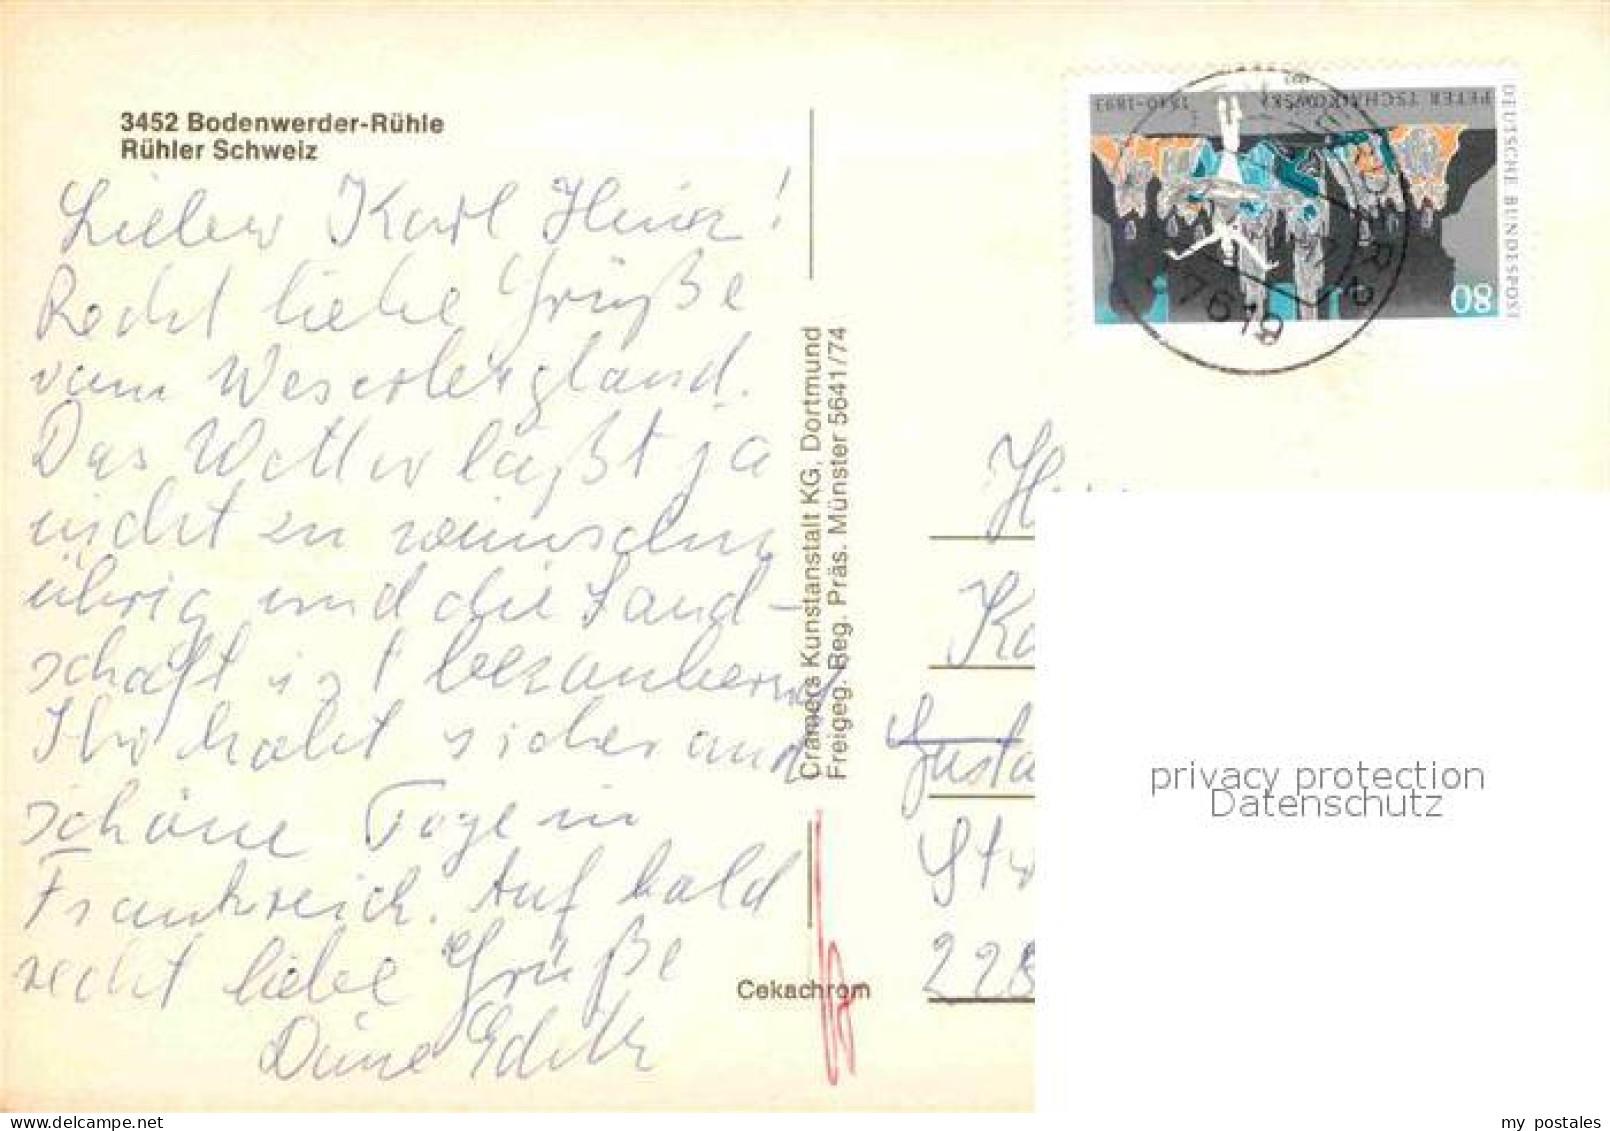 3452 Bodenwerder-Rühle
Rühler Schweiz
Lieber Karl Heinz!
Recht liebe Grüße
vom Weserbergland.
Das Wetter läßt ja
nicht zu wünschen
übrig und die Land-
schaft ist bezaubernd
Ihr habt sicher auch
schöne Tage in
Frankreich. Auf bald
recht liebe Grüße
Deine Edith
Cramers Kunstanstalt KG, Dortmund
Freigeg. Reg. Präs. Münster 5641/74
Cekachrom
PETER TSCHAIKOWSKY 1840-1893
DEUTSCHE BUNDESPOST
80
Gusta
Str
228
privacy protection
Datenschutz
my postales